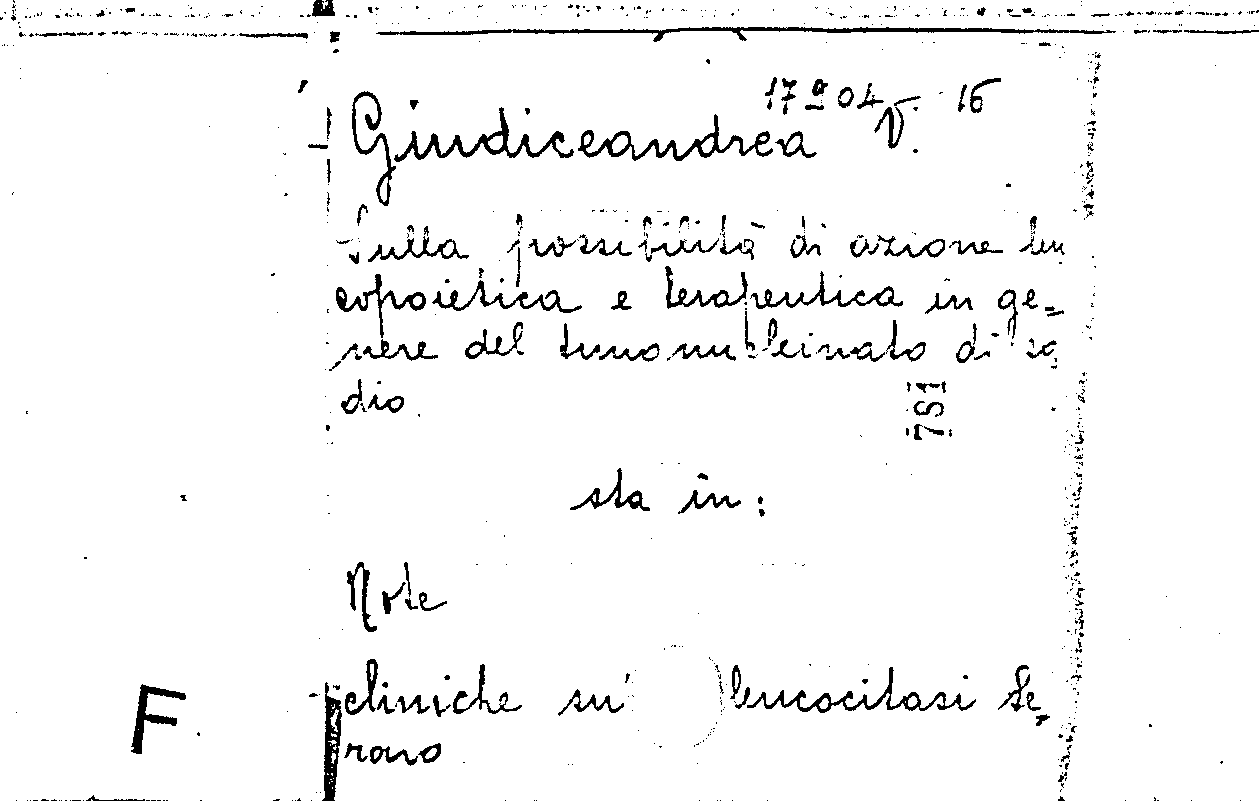 17 9 04 16
Giudiceandrea V.
Sulla possibilità di azione leu
copoietica e terapeutica in ge=
nere del timonucleinato di so
dio
781
sta in:
Note
cliniche su leucocitasi Se
rono
F